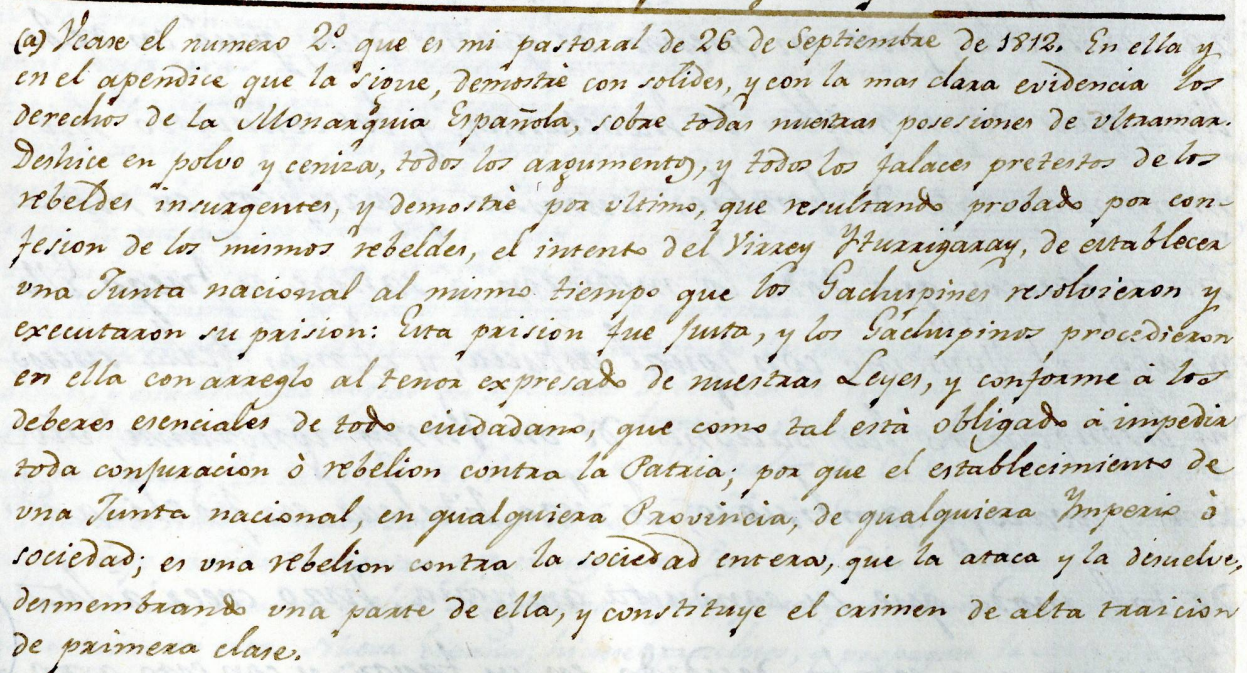 (a) Vease el numero 2.º que es mi pastoral de 26 de Septiembre de 1812. En ella y
en el apendice que la sigue, demostrè con solides, y con la mas clara evidencia los
derechos de la Monarquia Española, sobre todas nuestras posesiones de vltramar.
Deshice en polvo y ceniza, todos los argumentos, y todos los falaces pretestos de los
rebeldes insurgentes, y demostrè por vltimo, que resultando probado por con-
fesion de los mismos rebeldes, el intento del Virrey Yturrigaray, de establecer
vna Junta nacional al mismo tiempo que los Gachupines resolvieron y
executaron su prision: Esta prision fue justa, y los Gachupinos procedieron
en ella con arreglo al tenor expresado de nuestras Leyes, y conforme à los
deberes esenciales de todo ciudadano, que como tal està obligado à impedir
toda conjuracion ò rebelion contra la Patria; por que el establecimiento de
vna Junta nacional, en qualquiera Provincia, de qualquiera Ymperio ò
sociedad; es vna rebelion contra la sociedad entera, que la ataca y la disuelve,
desmembrando vna parte de ella, y constituye el crimen de alta traicion
de primera clase.